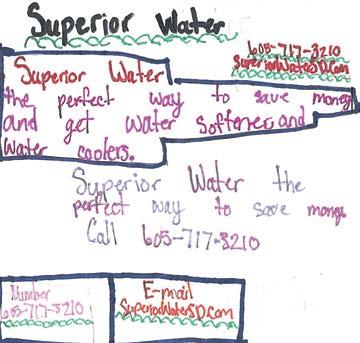 Superior Water
605-717-3210
SuperiorWaterSD.com
Superior Water
the perfect way to save money
and get water softeners and
Water coolers.
Superior Water the
perfect way to save money.
Call 605-717-3210
Number
605-717-3210
E-mail
SuperiorWaterSD.com